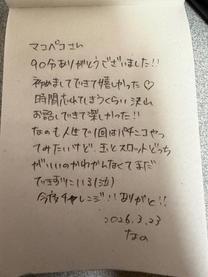 マコペコさん
90分ありがとうございました!!
初めましてできて嬉しかった♡
時間忘れてしまうくらい沢山
お話しできて楽しかった!!
なのも人生で1回はパチンコやっ
てみたいけど、玉とスロットどっち
がいいのかわかんなくてまだ
できずにいる(泣)
今度チャレンジ!!ありがと!!
2026.3.23
なの